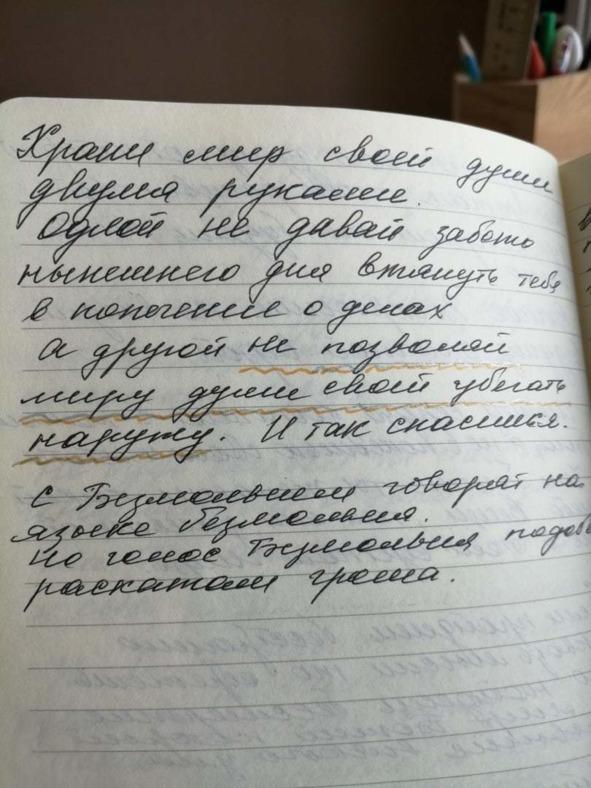 Храни мир своей души
двумя руками.
Одной не давай заботе
нынешнего дня втянуть тебя
в попечение о делах
а другой не позволяй
миру души своей убегать
наружу. И так спасишься.
С Безмолвием говорят на
языке безмолвия.
Но голос Безмолвия
раскатам грома.